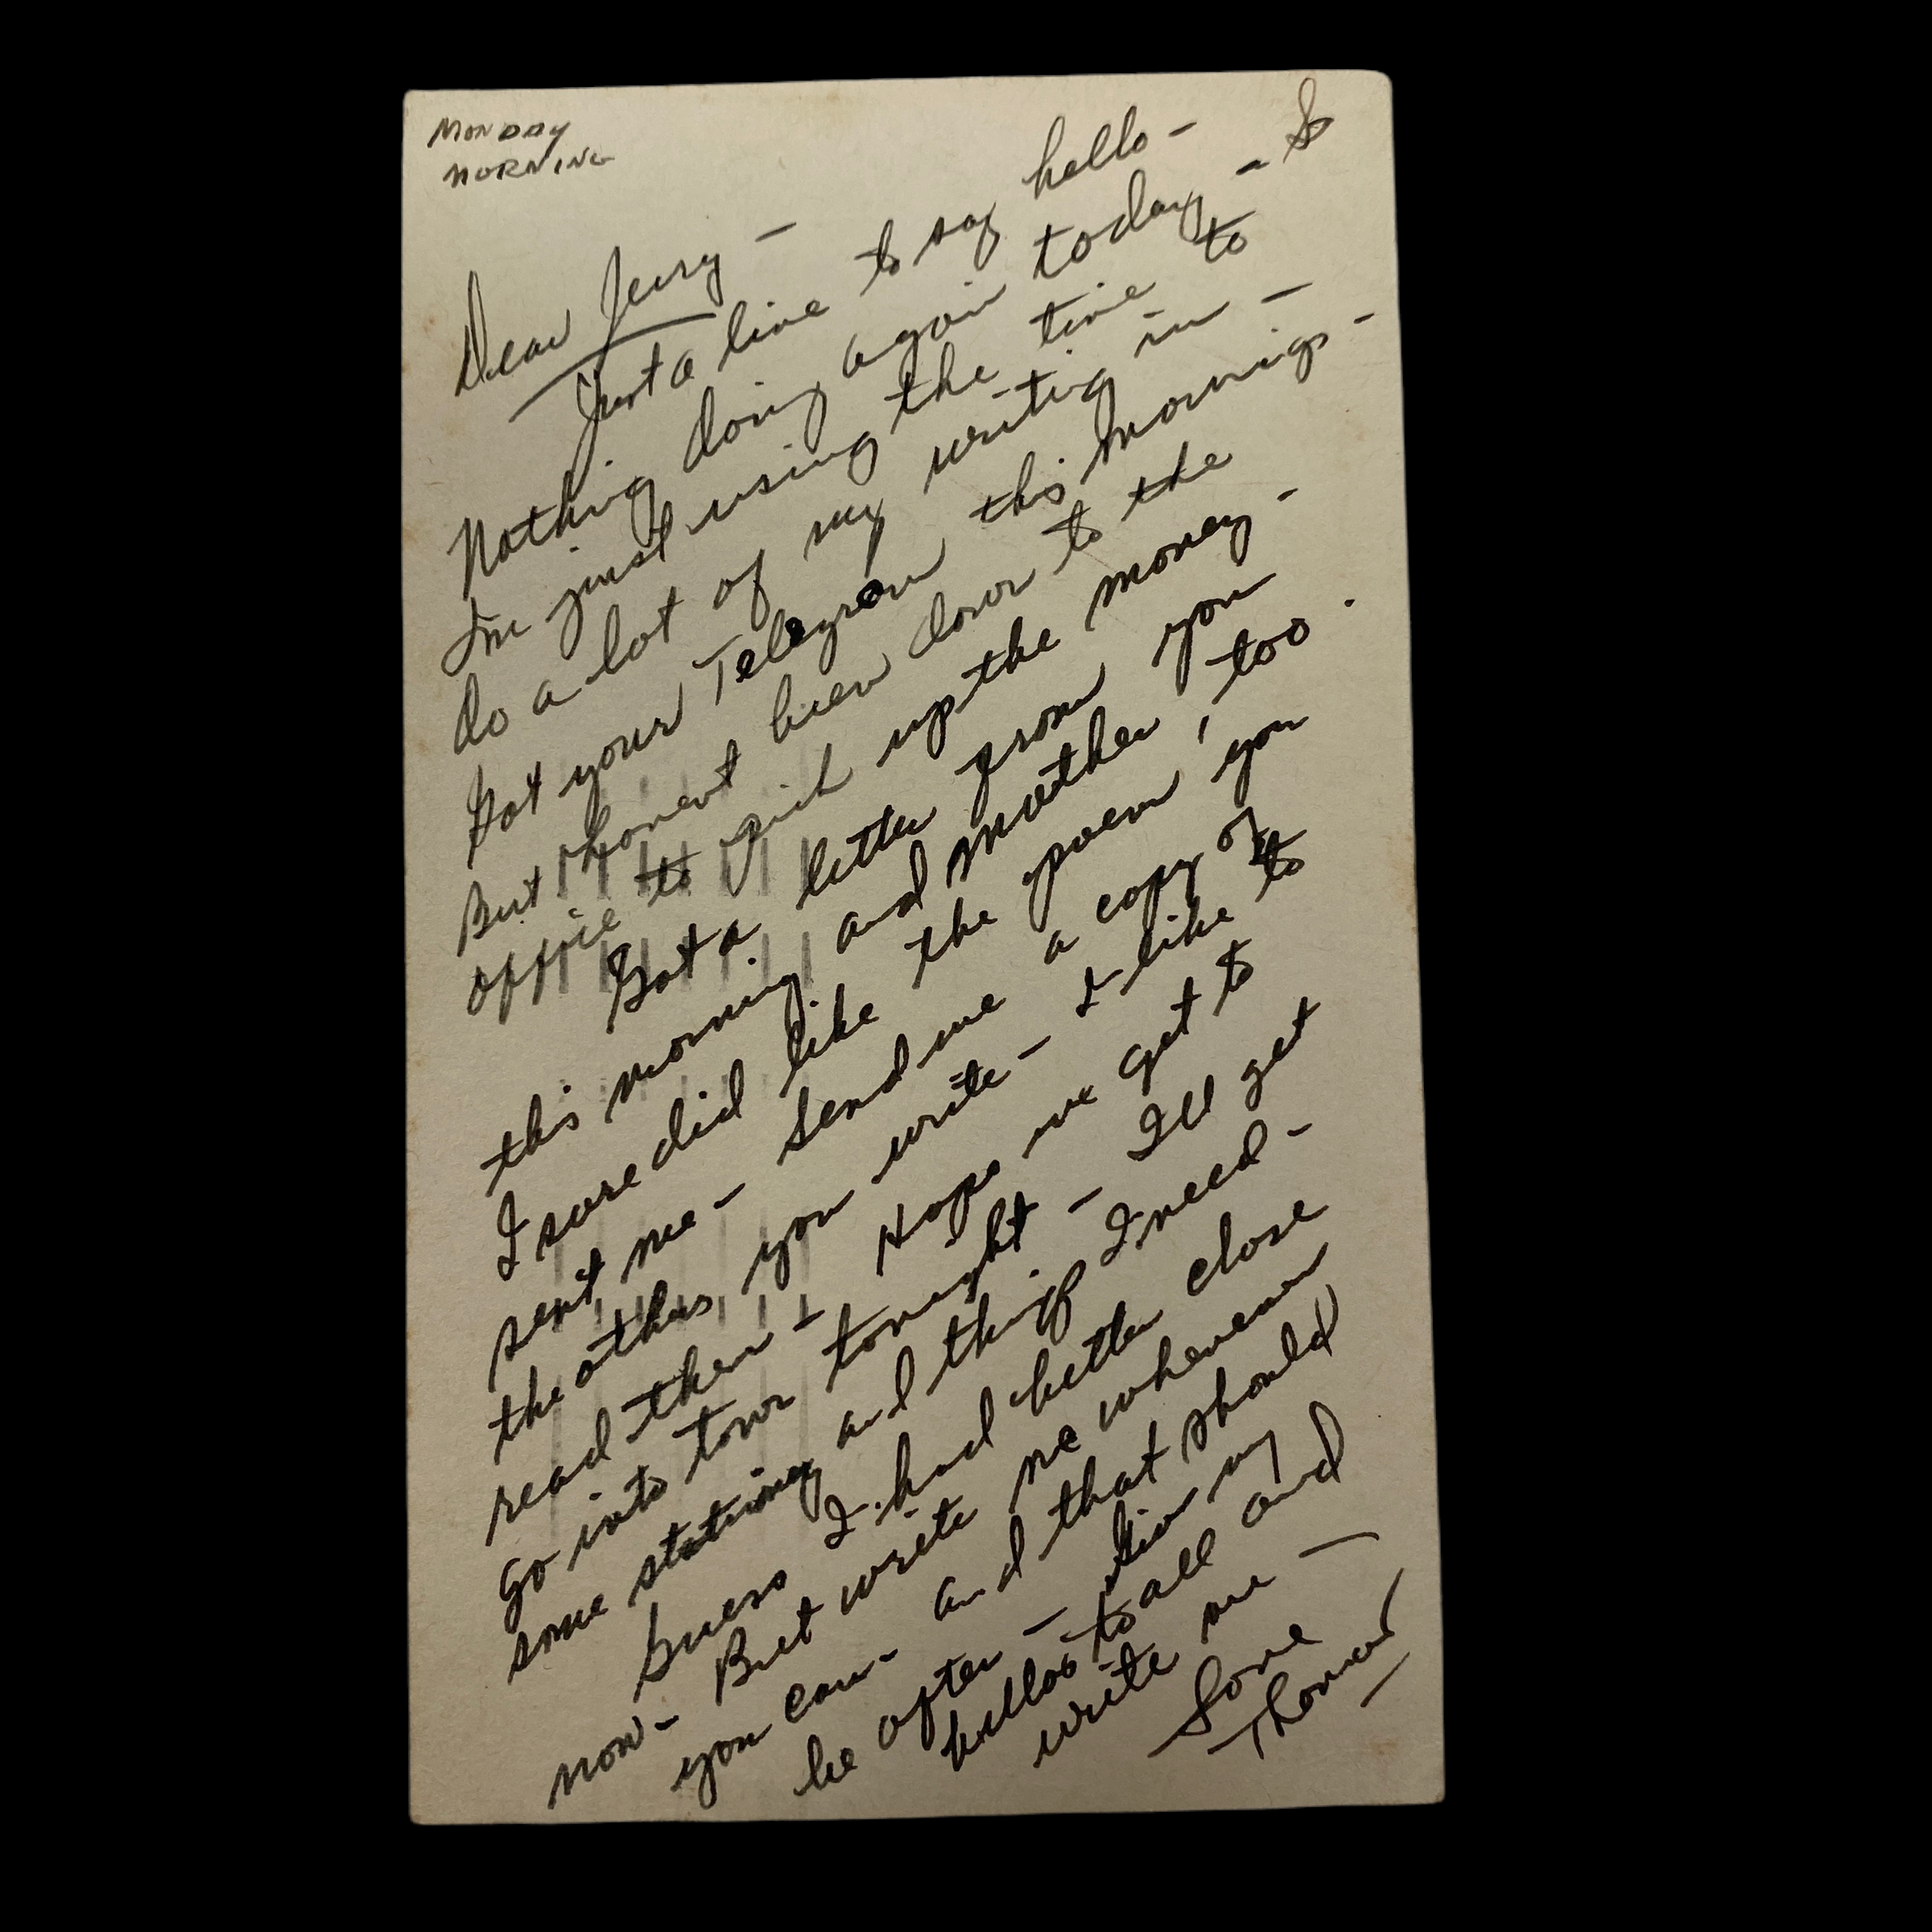 MONDAY
MORNING
Dear Jerry —
Just a line to say hello —
Nothing doing again today — So
Im just using the time to
do a lot of my writing in —
Got your Telegram this morning. —
But havent been down to the
office to pick up the money —
Got a letter from you
this morning and mother, too.
I sure did like the poem you
sent me — Send me a copy of
the others you write — I like to
read them — Hope we get to
go into town tonight — I'll get
some stationey and things I need —
Guess I had better close
now — But write me whenever
you can — and that should
be often — Give my
hellos to all and
write me —
Love
Thomas